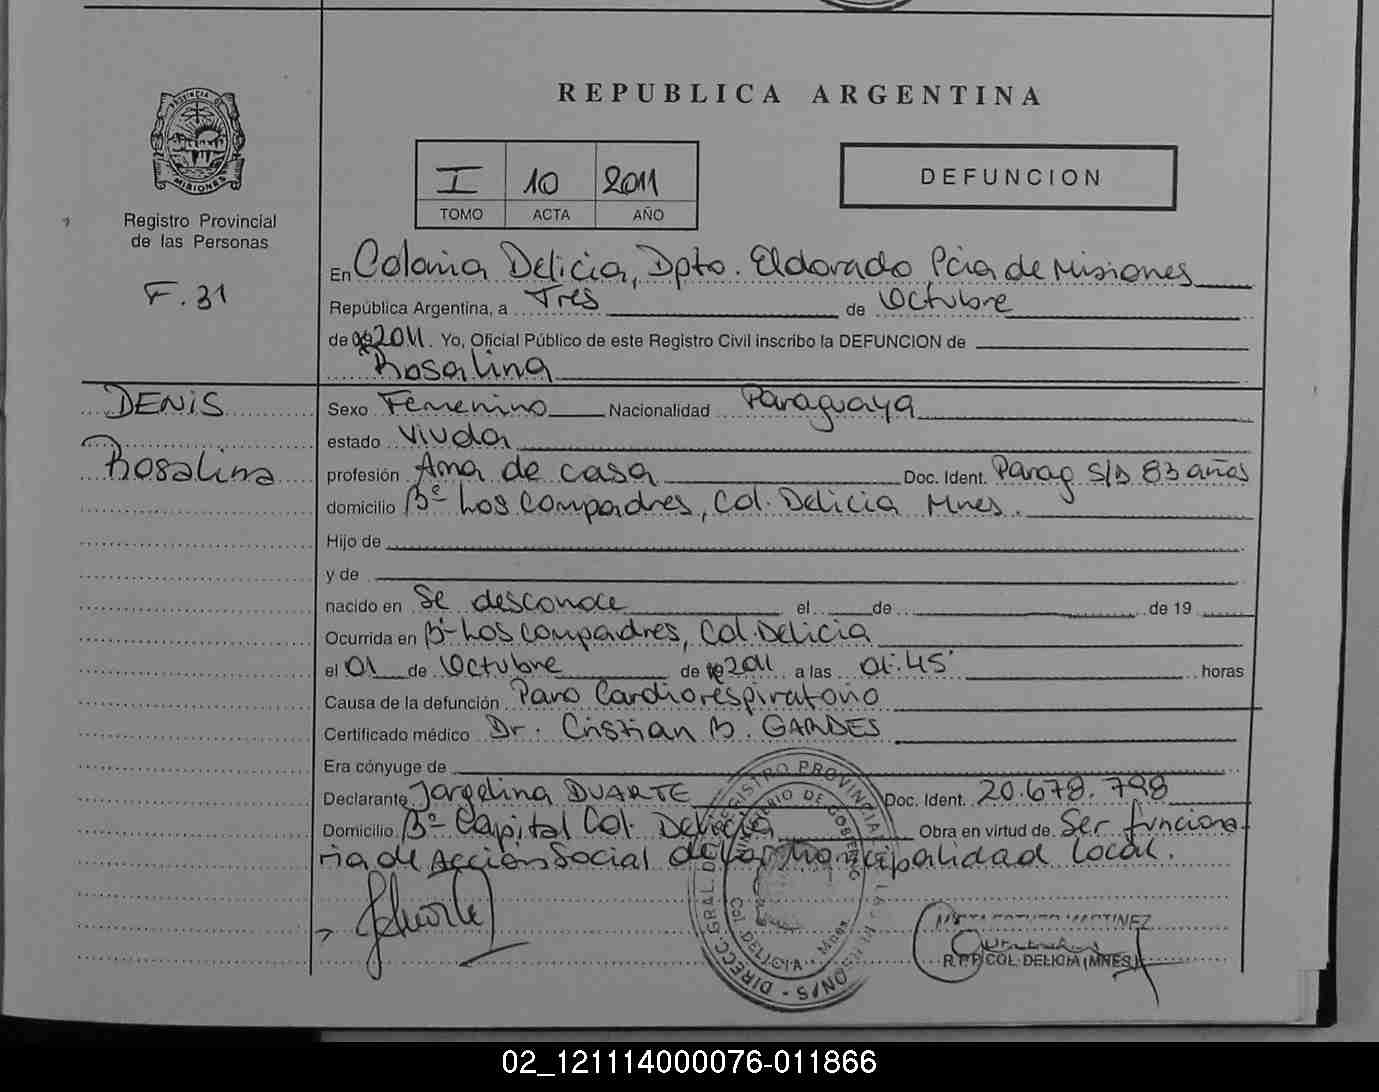 REPUBLICA ARGENTINA
PROVINCIA DE
MISIONES
Registro Provincial
de las Personas
F. 31
I 10 2011
TOMO ACTA AÑO
DEFUNCION
En Colonia Delicia, Dpto. Eldorado Pcia de Misiones
República Argentina, a Tres de Octubre
de 2011. Yo, Oficial Público de este Registro Civil inscribo la DEFUNCION de
Rosalina
DENIS
Rosalina
Sexo Femenino Nacionalidad Paraguaya
estado Viuda
profesión Ama de casa Doc. Ident. Parag S/D 83 años
domicilio Bº Los Compadres, Col. Delicia Mnes.
Hijo de
y de
nacido en Se desconoce el de de 19
Ocurrida en Bº Los Compadres, Col. Delicia
el 01 de Octubre de 2011 a las 01:45' horas
Causa de la defunción Paro Cardiorespiratorio
Certificado médico Dr. Cristian B. GARDES
Era cónyuge de
Declarante Jorgelina DUARTE Doc. Ident. 20.678.798
Domicilio Bº Capital Col. Delicia Obra en virtud de Ser funciona-
ria de Acción Social de la Municipalidad local.
DIRECC. GRAL. DE REGISTRO PROVINCIAL
MINISTERIO DE GOBIERNO
Col. DELICIA - Mnes.
MISIONES
MARTINEZ
R.P.P. COL. DELICIA (MNES)
02_121114000076-011866